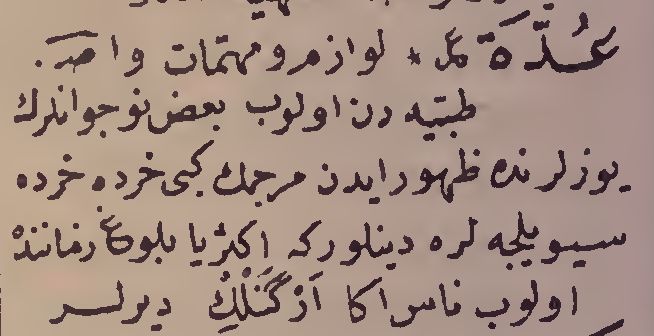 عُدَّة ع * لوازم و مهمّات و اصـ
طبّیه دن اولوب بعض نوجوانلرك
یوزلرنده ظهور ایدن مرجمك كبی خرده خرده
سیویلجه لره دینلور كه اكثریا بلوغ زماننده
اولوب ناس اكا اَرْگَنْلِكْ دیرلر